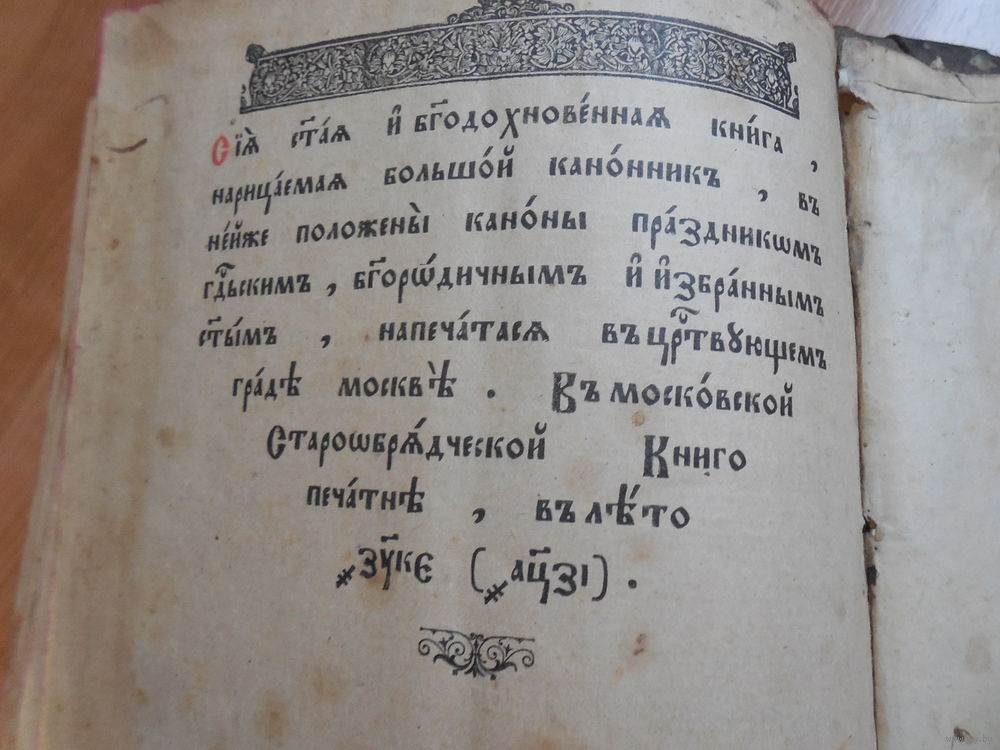 Сїѧ̀ ст҃а́ѧ и҆ бг҃одохнове́ннаѧ кни́га ,
нарица́емаѧ большо́й кано́нникъ , въ
не́йже положены̀ кано́ны пра́здникѡмъ
гдⷭ҇ьскимъ , бг҃орѡ́дичнымъ и҆ и҆збра́ннымъ
ст҃ы́мъ , напеча́тасѧ въ црⷭ҇твꙋющемъ
гра́дѣ москвѣ̀ . Въ моско́вской
Старошбрѧ́дческой Книго
печа́тнѣ , въ лѣ́то
҂зу҃кє (҂ац҃зі) .